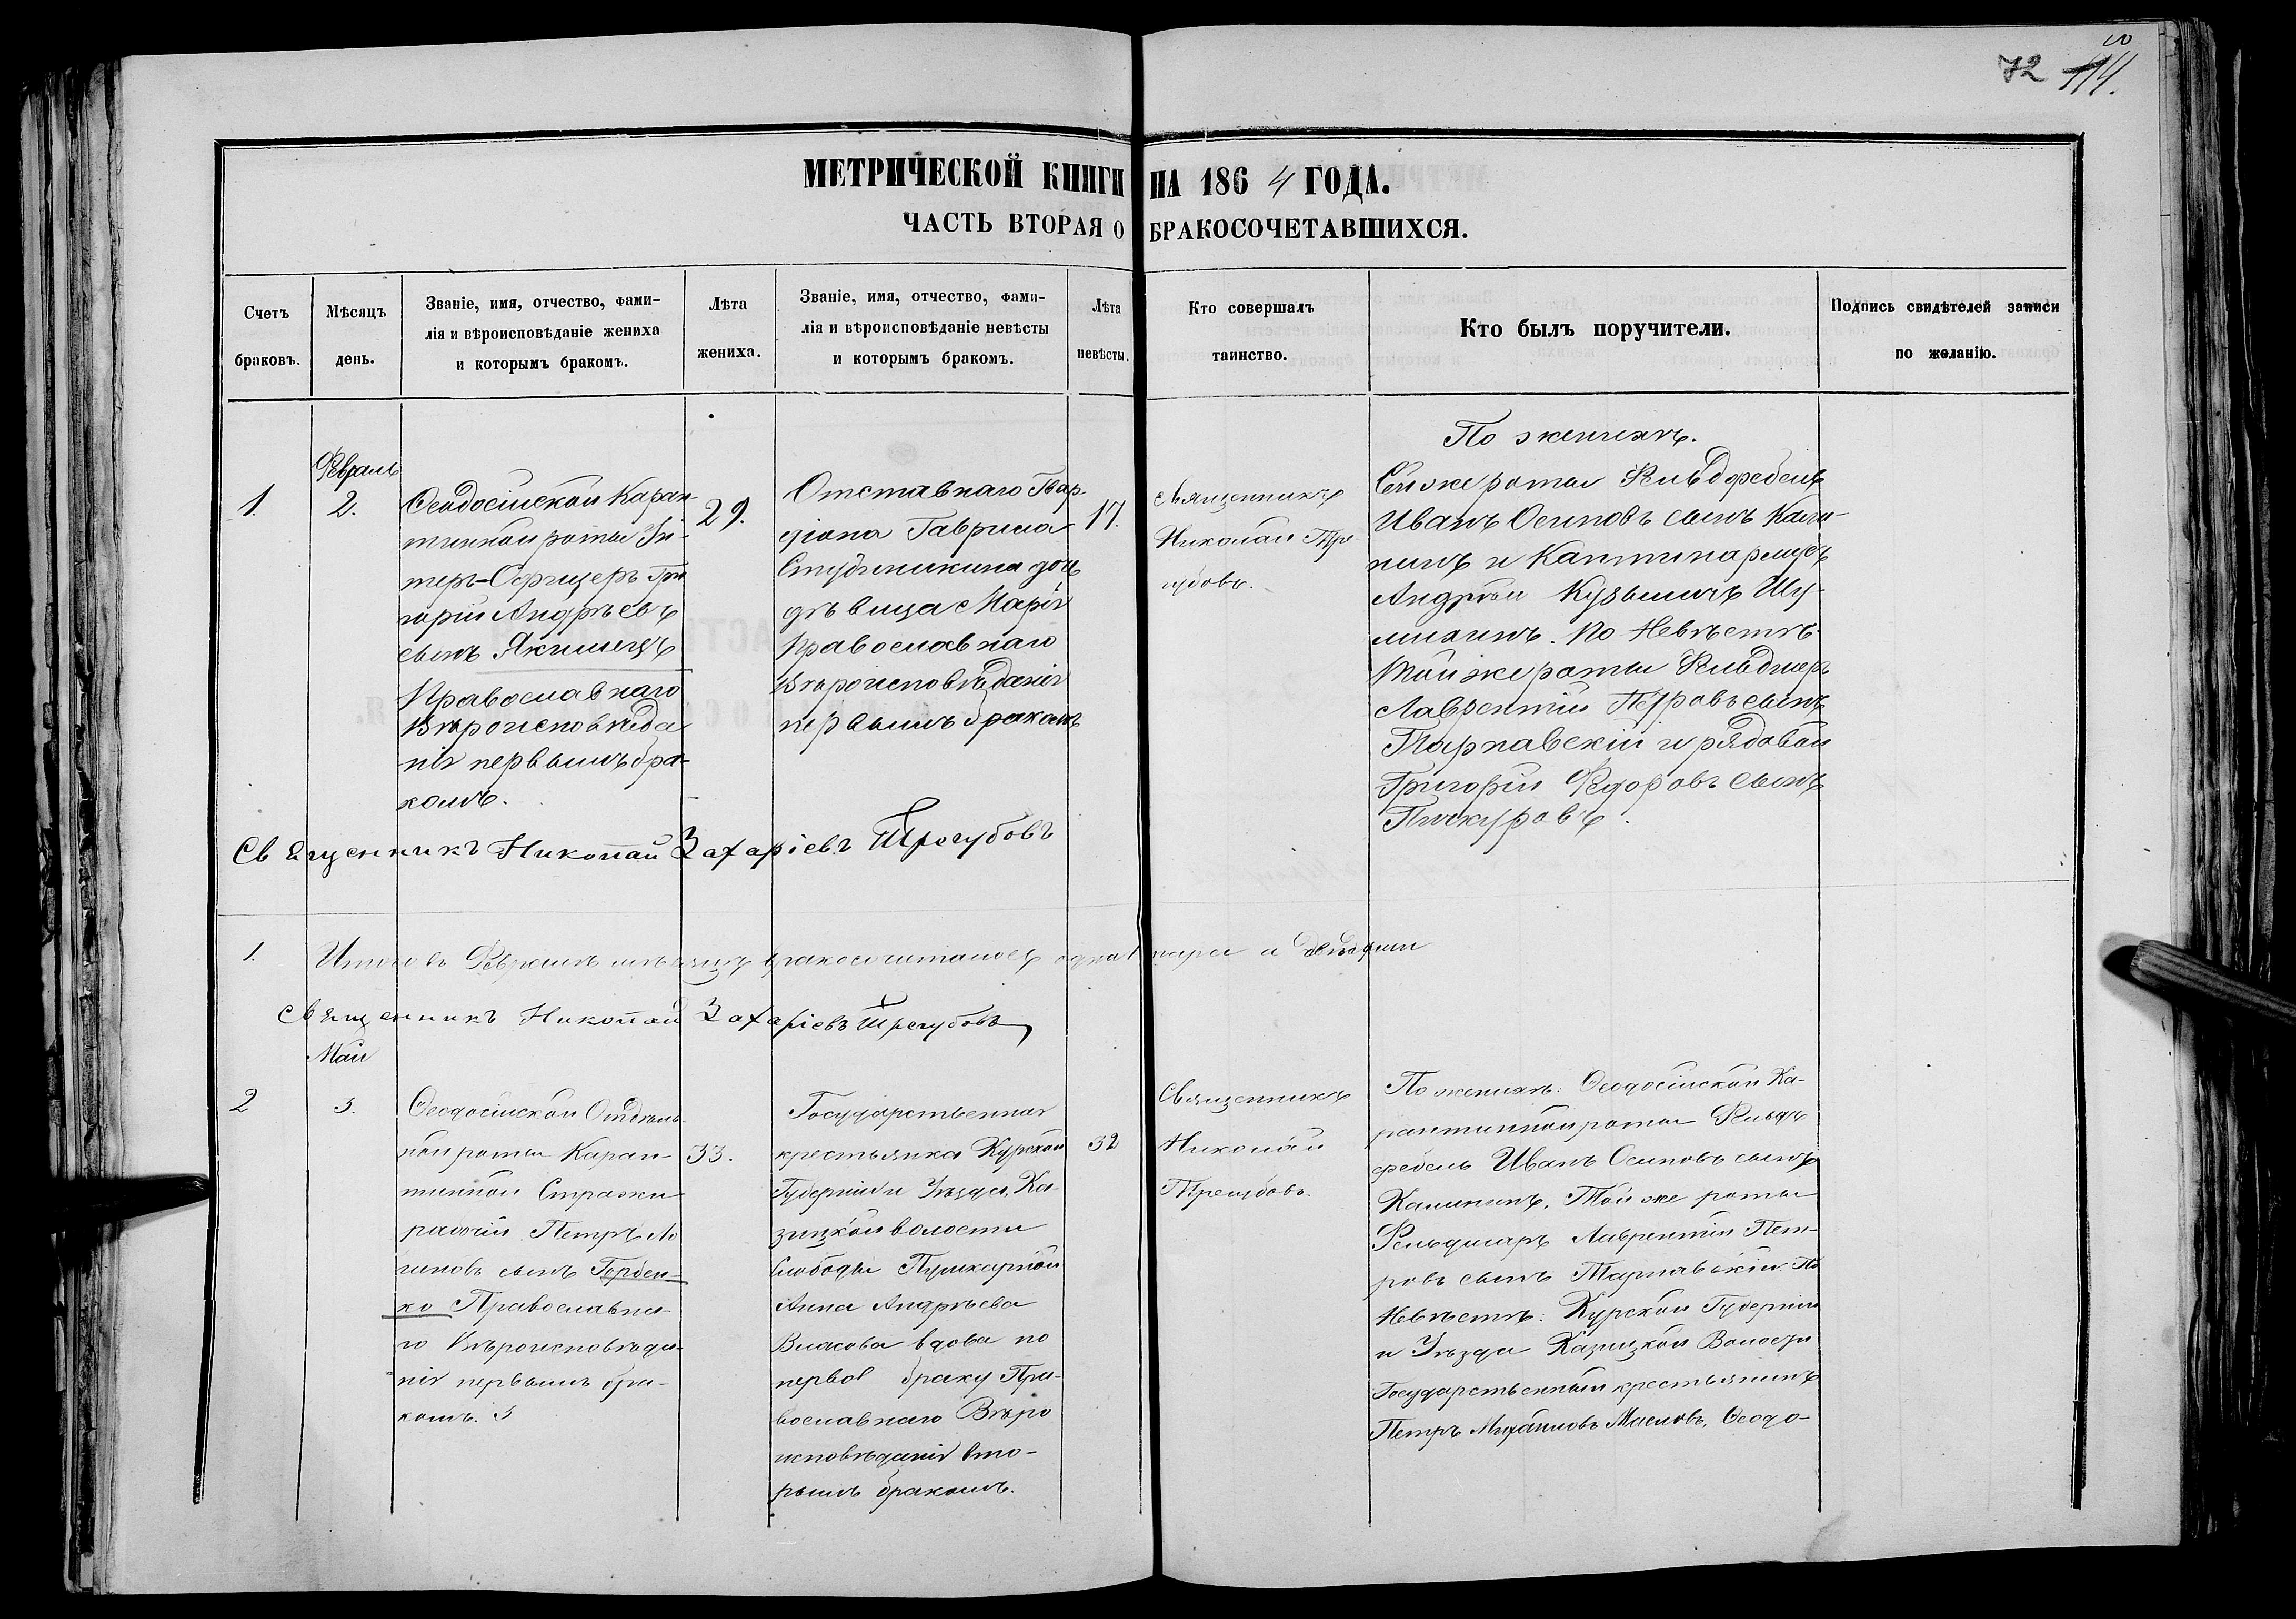 72 114.
МЕТРИЧЕСКОЙ КНИГИ НА 1864 ГОДА.
ЧАСТЬ ВТОРАЯ О БРАКОСОЧЕТАВШИХСЯ.
Счетъ
браковъ.
Мѣсяцъ
день.
Званіе, имя, отчество, фами-
лія и вѣроисповѣданіе жениха
и которымъ бракомъ.
Лѣта
жениха.
Званіе, имя, отчество, фами-
лія и вѣроисповѣданіе невѣсты
и которымъ бракомъ.
Лѣта
невѣсты.
Кто совершалъ
таинство.
Кто былъ поручители.
Подпись свидѣтелей записи
по желанію.
1.
Февраль
2.
Ѳеодосійской Каран-
тинной роты Ун-
теръ-Офицеръ Гри
горій Андрѣевъ
сынъ Якимецъ
Православнаго
Вѣроисповѣда
нія первымъ бра-
комъ.
29.
Отставнаго
Гавріила
дочь
дѣвица Марія
Православнаго
Вѣроисповѣданія
первымъ бракомъ
17.
Священникъ
Николай Тре-
губовъ.
По женихѣ.
роты Фельдфебель
Иванъ Осиповъ сынъ Кали-
нинъ и Каптинармусъ
Андрей Кузьмичъ Шу-
михинъ. По Невѣстѣ
Той же роты Фельдшеръ
Лаврентій Петровъ сынъ
Тарнавскій и рядовой
Григорій Федоровъ сынъ
Пискуровъ.
Священникъ Николай Захаріевъ Трегубовъ
1. Итого въ Февралѣ мѣсяцѣ бракосочеталось одна 1 пара
Священникъ Николай Захаріевъ Трегубовъ
2
Май
3.
Ѳеодосійской Отдѣль-
ной роты Каран-
тинной Стражи
рабочій Петръ Ло
гиновъ сынъ Горбен-
ко Православна-
го Вѣроисповѣда-
нія первымъ бра-
комъ.
33.
Государственная
крестьянка Курской
Губерніи и Уѣзда, Ка-
зацкой волости
Слободы Пушкарной
Анна Андрѣева
Власова вдова по
первов браку Пра-
вославнаго Вѣро
исповѣданія вто-
рымъ бракомъ.
32
Священникъ
Николай
Трегубовъ.
По женихѣ: Ѳеодосійской Ка-
рантинной роты Фельд
фебель Иванъ Осиповъ сынъ
Калининъ, Той же роты
Фельдшеръ Лаврентій Пет-
ровъ сынъ Тарнавскій. По
Невѣстѣ: Курской Губерніи
и Уѣзда Казацкой Волости
Государственный крестьянинъ
Петръ Михайловъ Масловъ, Ѳеодо-